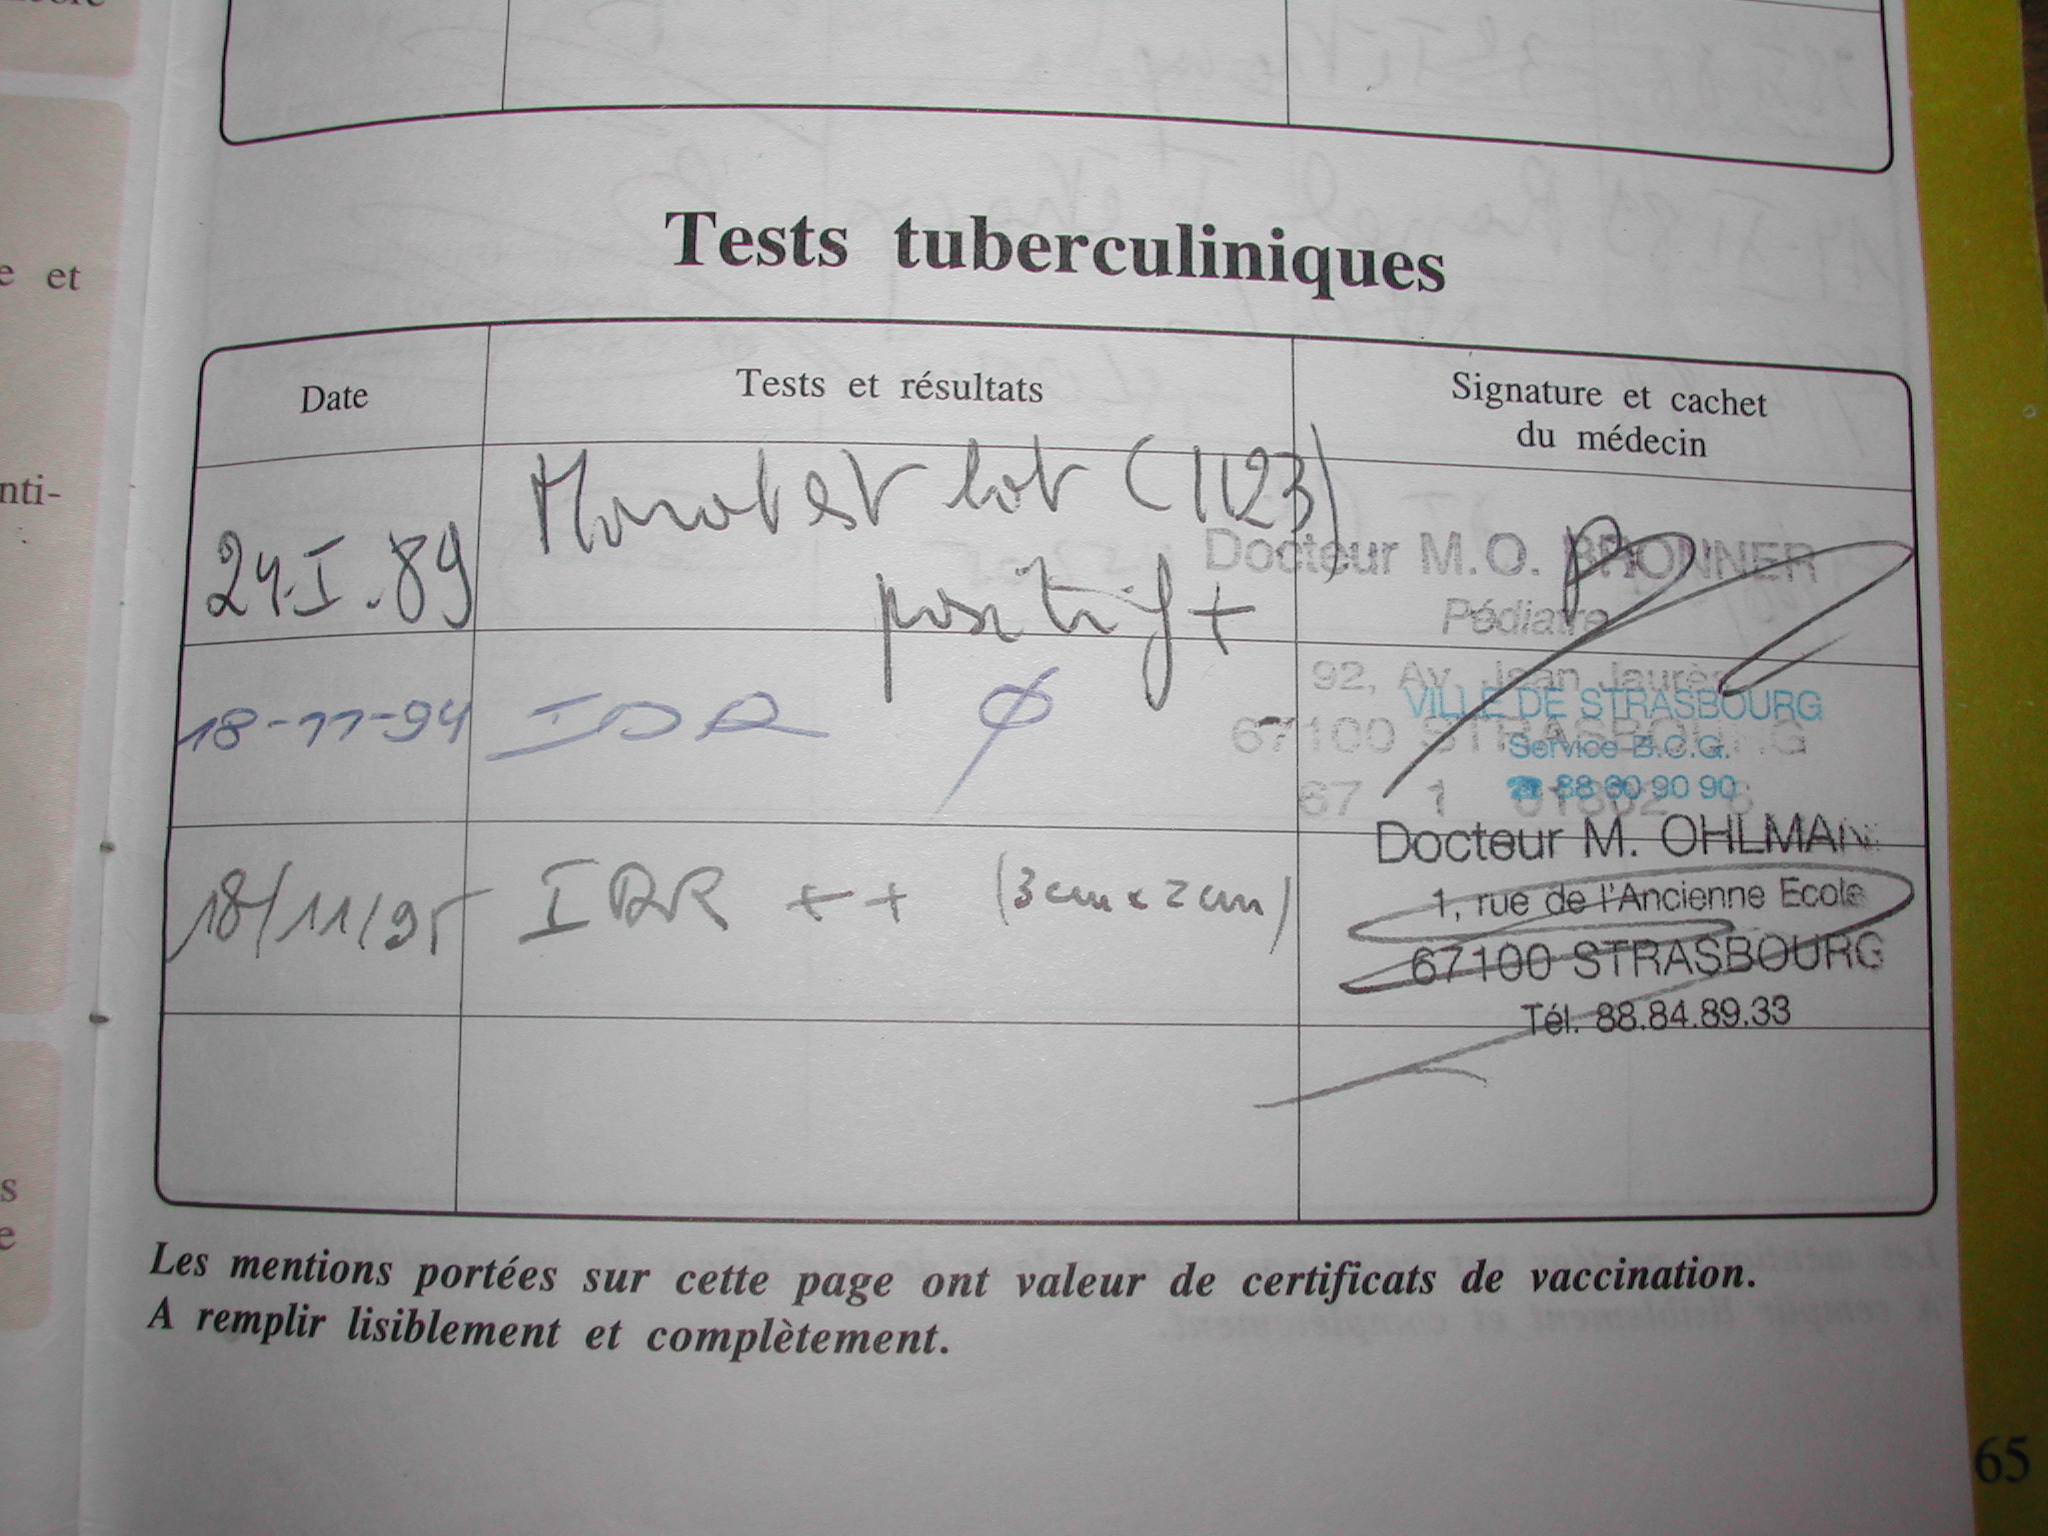 e et
nti-
s
e
Tests tuberculiniques
Date Tests et résultats Signature et cachet
du médecin
24.I.89 Monotest lot (1123)
positif +
Docteur M.O. BRONNER
Pédiatre
92, Av. Jean Jaurès
67100 STRASBOURG
18-11-94 IDR ϕ
VILLE DE STRASBOURG
Service B.C.G.
☎ 88 60 90 90
18/11/95 IDR ++ (3cm x 2cm)
Docteur M. OHLMANN
1, rue de l'Ancienne Ecole
67100 STRASBOURG
Tél. 88.84.89.33
Les mentions portées sur cette page ont valeur de certificats de vaccination.
A remplir lisiblement et complètement.
65